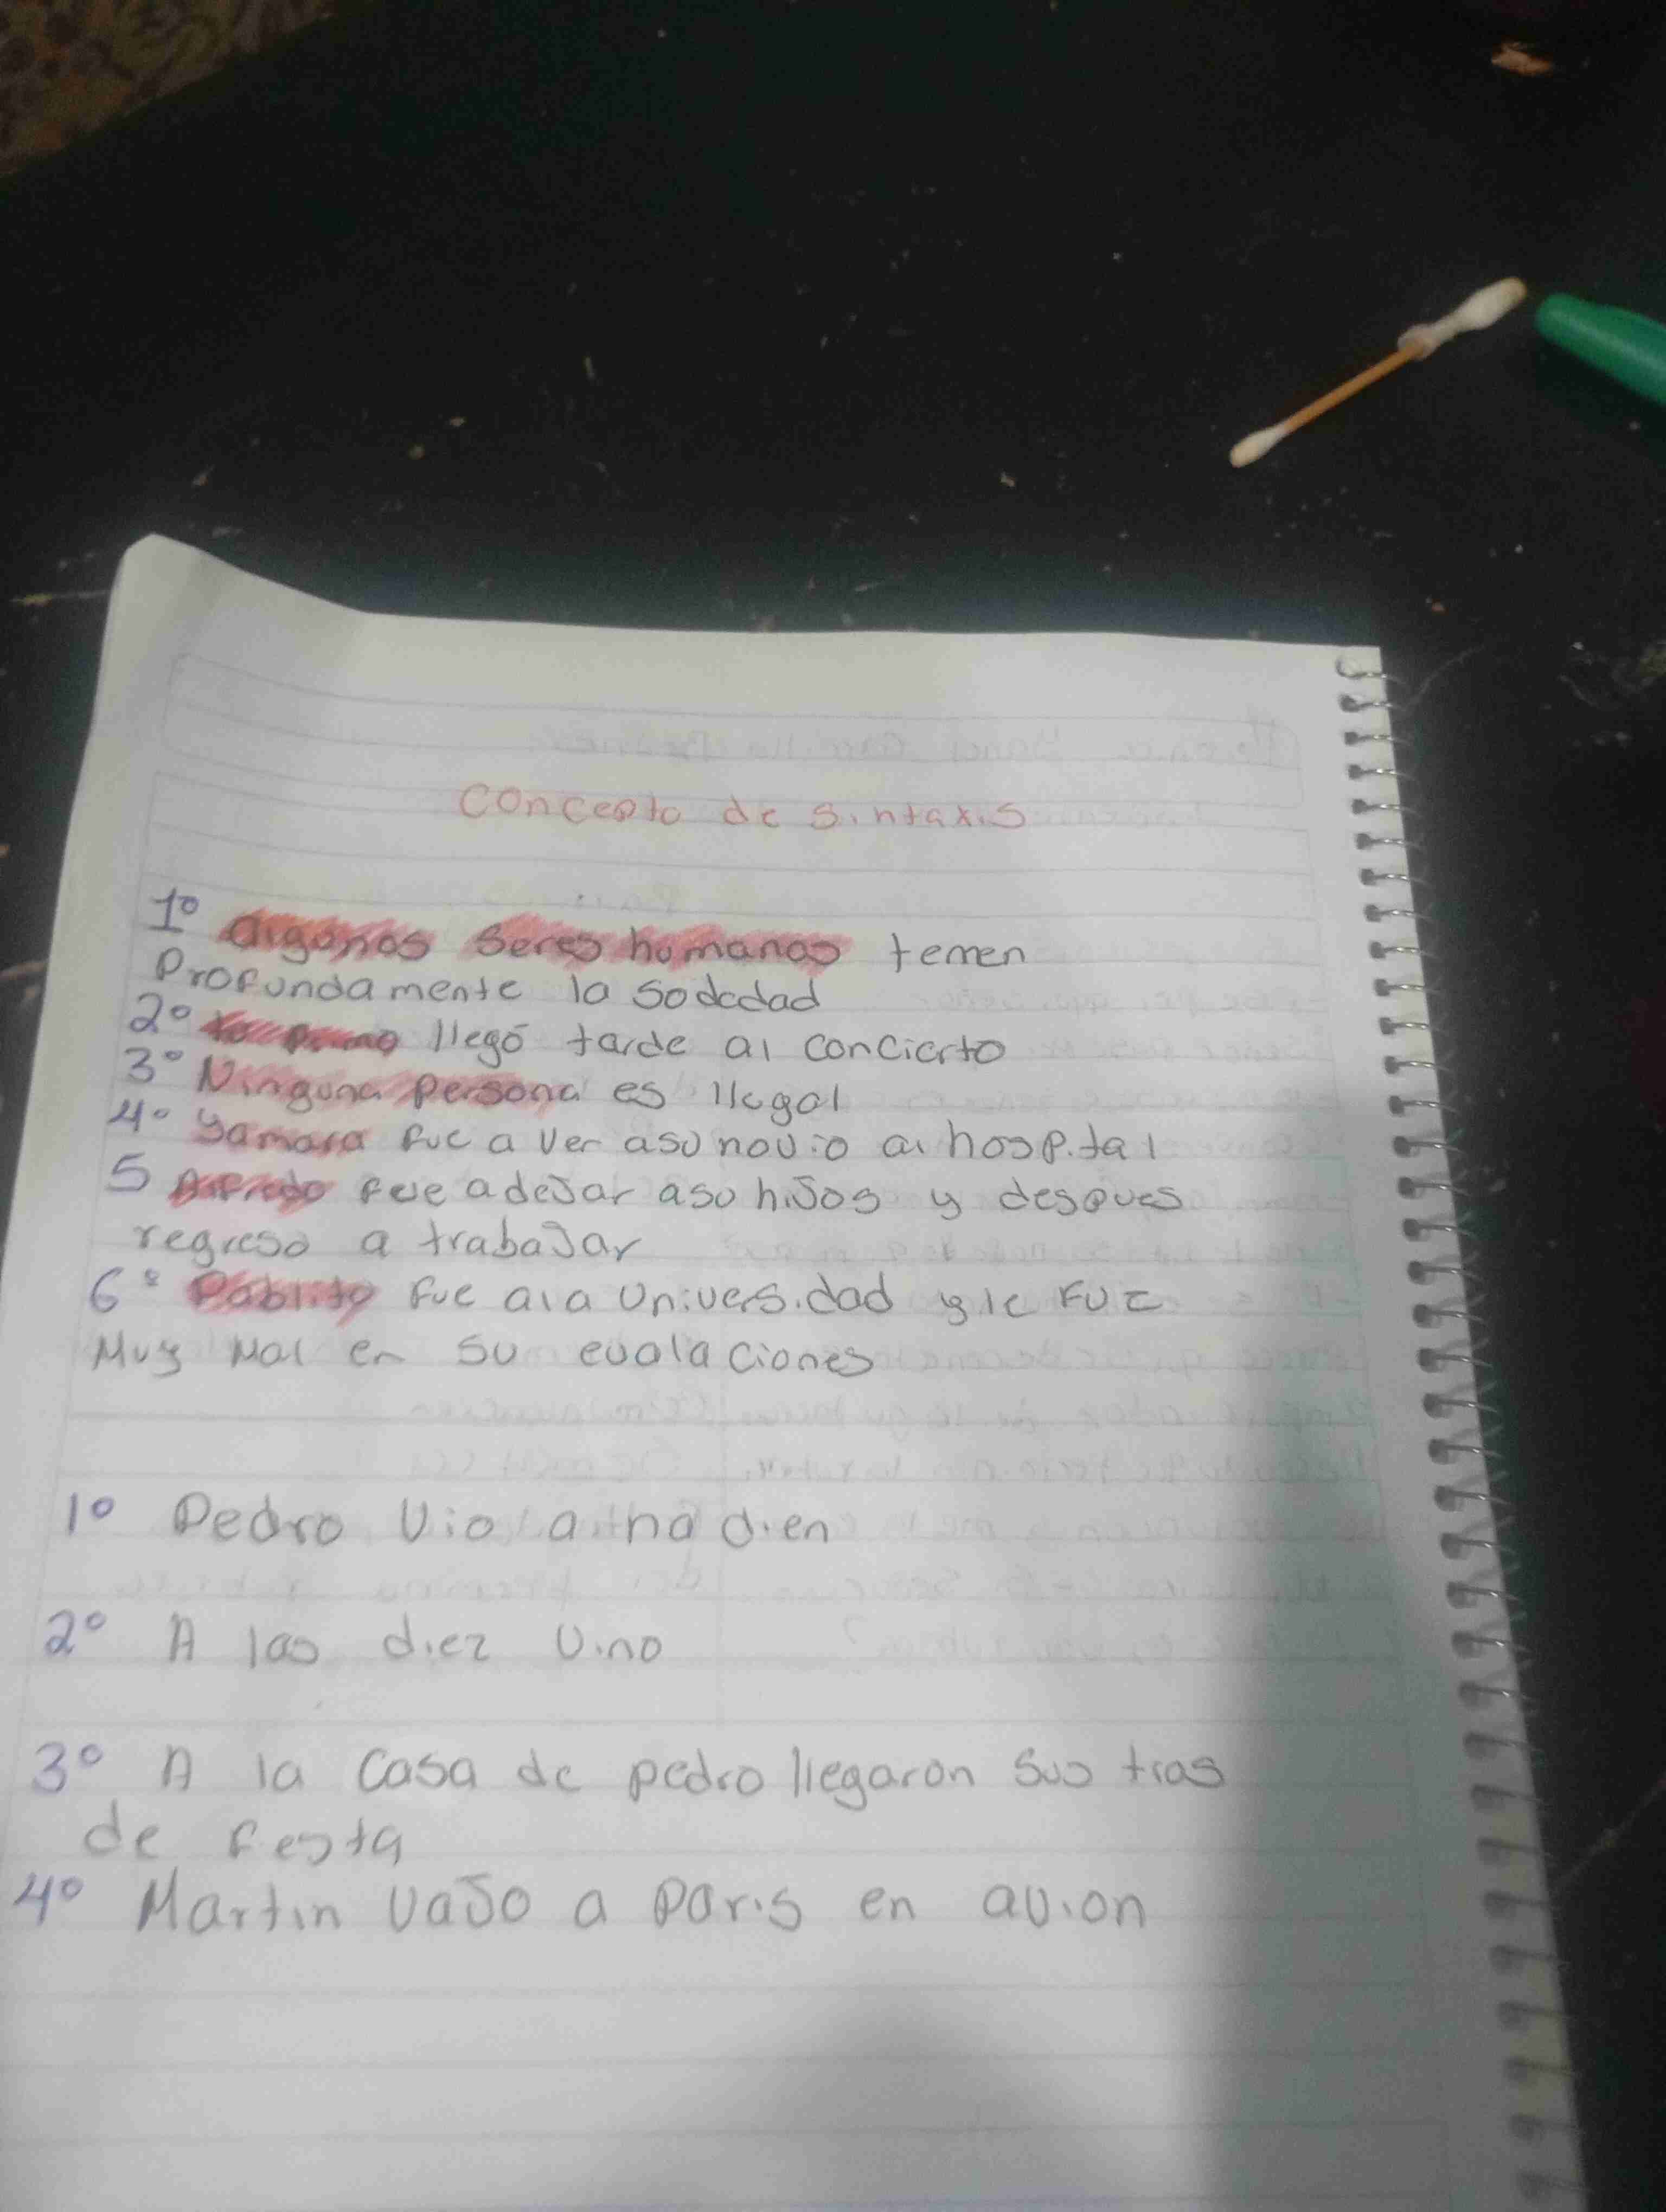 Concepto de sintaxis
1º Algunos Seres humanos temen
Profundamente la sodedad
2º tu Primo llegó tarde al concierto
3º Ninguna Persona es llegal
4º Yamara fue a ver asu novio al hospital
5 Alfredo fue a dejar asu hijos y despues
regreso a trabajar
6º Pablito fue ala Universidad y le FUE
Muy Mal en su evalaciones
1º Pedro Vio a nadien
2º A las diez Vino
3º A la Casa de pedro llegaron sus tias
de festa
4º Martin Vajo a Paris en avion